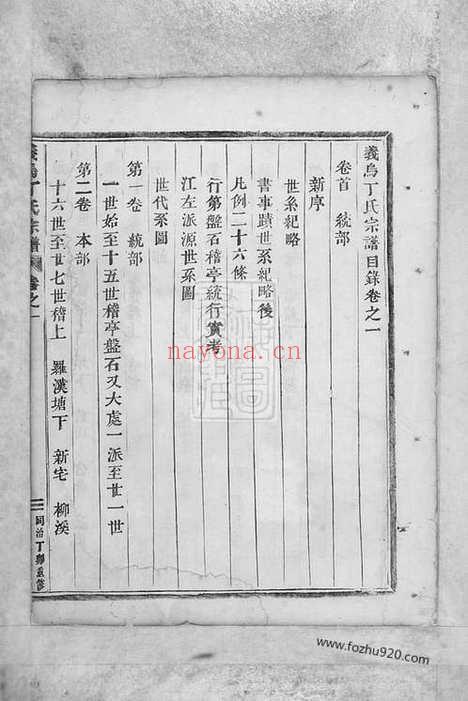 義烏丁氏宗譜目錄卷之一
卷首 統部
新序
世系紀略
書事蹟世系紀略後
凡例二十六條
行第盤石稽亭統行實考
江左派源世系圖
世代系圖
第一卷 統部
一世始至十五世稽亭盤石又大處一派至世一世
第二卷 本部
十六世至世七世稽上 羅漢塘下 新宅 柳溪
義烏丁氏宗譜 卷之一
同治丁卯重修
nayona.cn
www.fozhu920.com